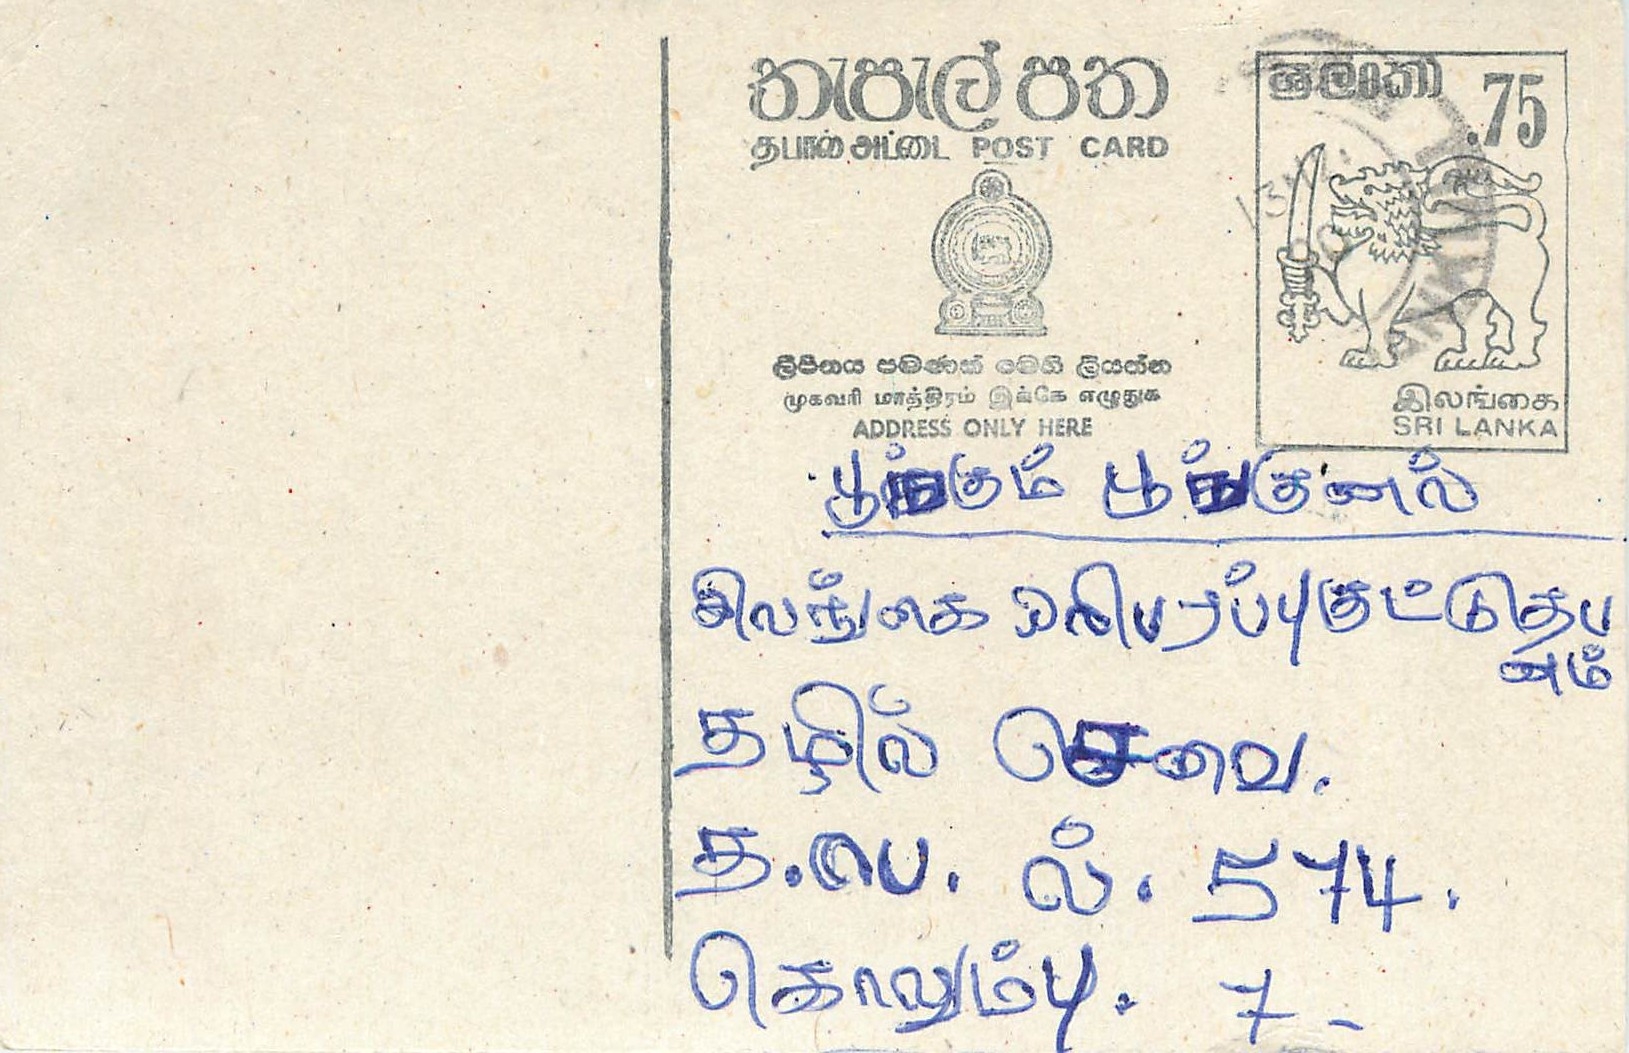 තැපැල් පත
தபால் அட்டை POST CARD
ශ්‍රී ලංකා .75
ලිපිනය පමණක් මෙහි ලියන්න
முகவரி மாத்திரம் இங்கே எழுதுக
ADDRESS ONLY HERE
இலங்கை
SRI LANKA
பூங்கும் பூங்குனல்
இலங்கை ஒலிபரப்பு
தழில் சேவை.
த.பெ. ல். 574.
கொலும்பு. 7-